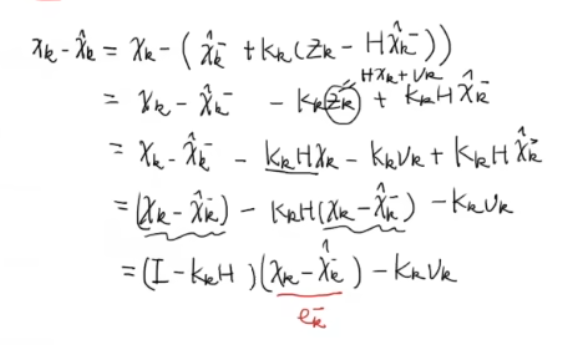 x_k - x̂_k = x_k - ( x̂_k^- + K_k(z_k - Hx̂_k^-))
Hx_k + v_k
= x_k - x̂_k^- - K_k z_k + K_k H x̂_k^-
= x_k - x̂_k^- - K_k H x_k - K_k v_k + K_k H x̂_k^-
= (x_k - x̂_k^-) - K_k H(x_k - x̂_k^-) - K_k v_k
= (I - K_k H)(x_k - x̂_k^-) - K_k v_k
e_k^-